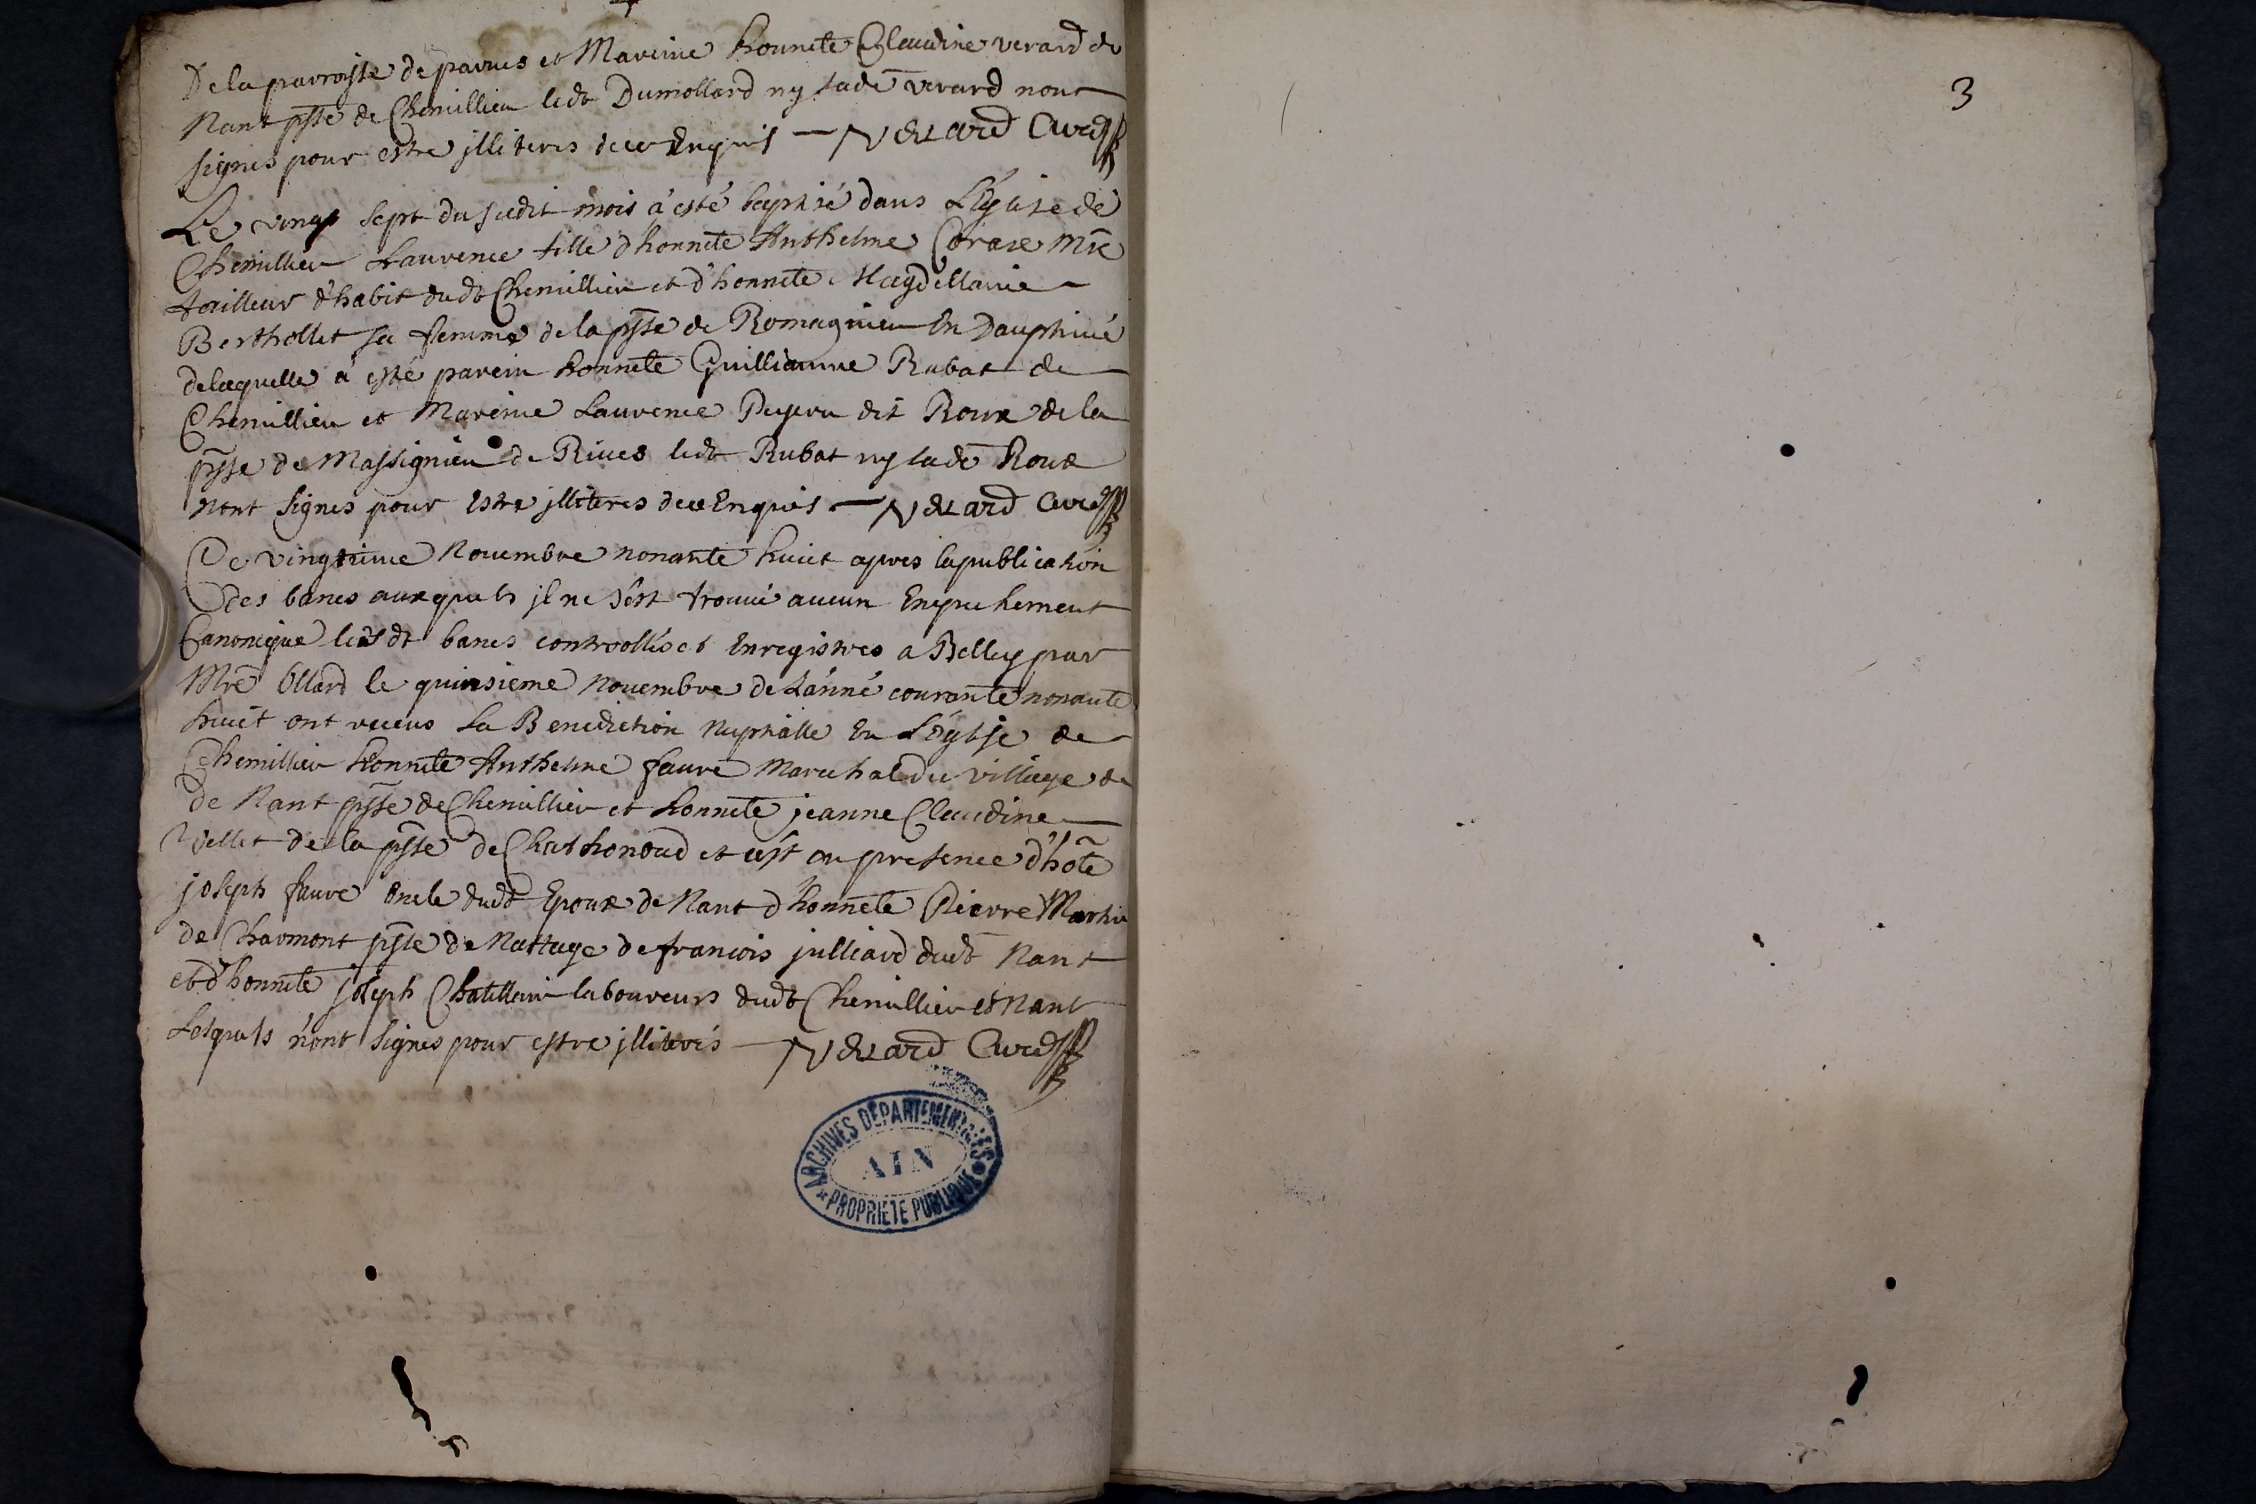 De la parroisse de parves et Mareine honnete Claudine verard de
Nant psse de Chemillieu ledt Dumollard ny ladē verard nont
signes pour estre jlliteres de ce Enquis — N VERARD Curé
Le vingt sept du sudit mois à esté baptisé dans L'Eglise de
Chemillieu Laurence fille d'honnete Anthelme Coraxe Mre
tailleur d'habit dudt Chemillieu et d'honnete Magdellaine
Berthollet sa femme de la psse de Romagnieu En Dauphiné
delaquelle à esté parein honnete Guilliaume Rubat de
Chemillieu et Mareine Laurence Peyru dit Roux de la
psse de Massignieu de Rives ledt Rubat ny ladē Roux
nont signes pour Estre jlliteres de ce Enquis — N VERARD Curé
Ce vingtieme Novembre nonante huict apres la publication
des bancs auxquels jl ne s'est trouvé aucun Empechement
Canonique lesdt bancs controollés et Enregistres a Belley par
Mre Ollard le quinsieme Novembre de L'anné courante nonante
huict ont receus La Benediction Nuptialle En L'Eglise de
Chemillieu honnete Anthelme faure Marechal du village de
de Nant psse de Chemillieu et honnete jeanne Claudine
Vellet de la psse de Chathonoud et c'est en presence d'hote
joseph faure Oncle dudt Epoux de Nant d'honnete Pierre Martin
de Charmont psse de Nattage de francois julliard dudt Nant
et d'honnete joseph Chatillain laboureurs dudt Chemillieu et Nant
Lesquels n'ont signes pour estre jlliterés — N VERARD Curé
ARCHIVES DEPARTEMENTALES
AIN
PROPRIETE PUBLIQUE
3